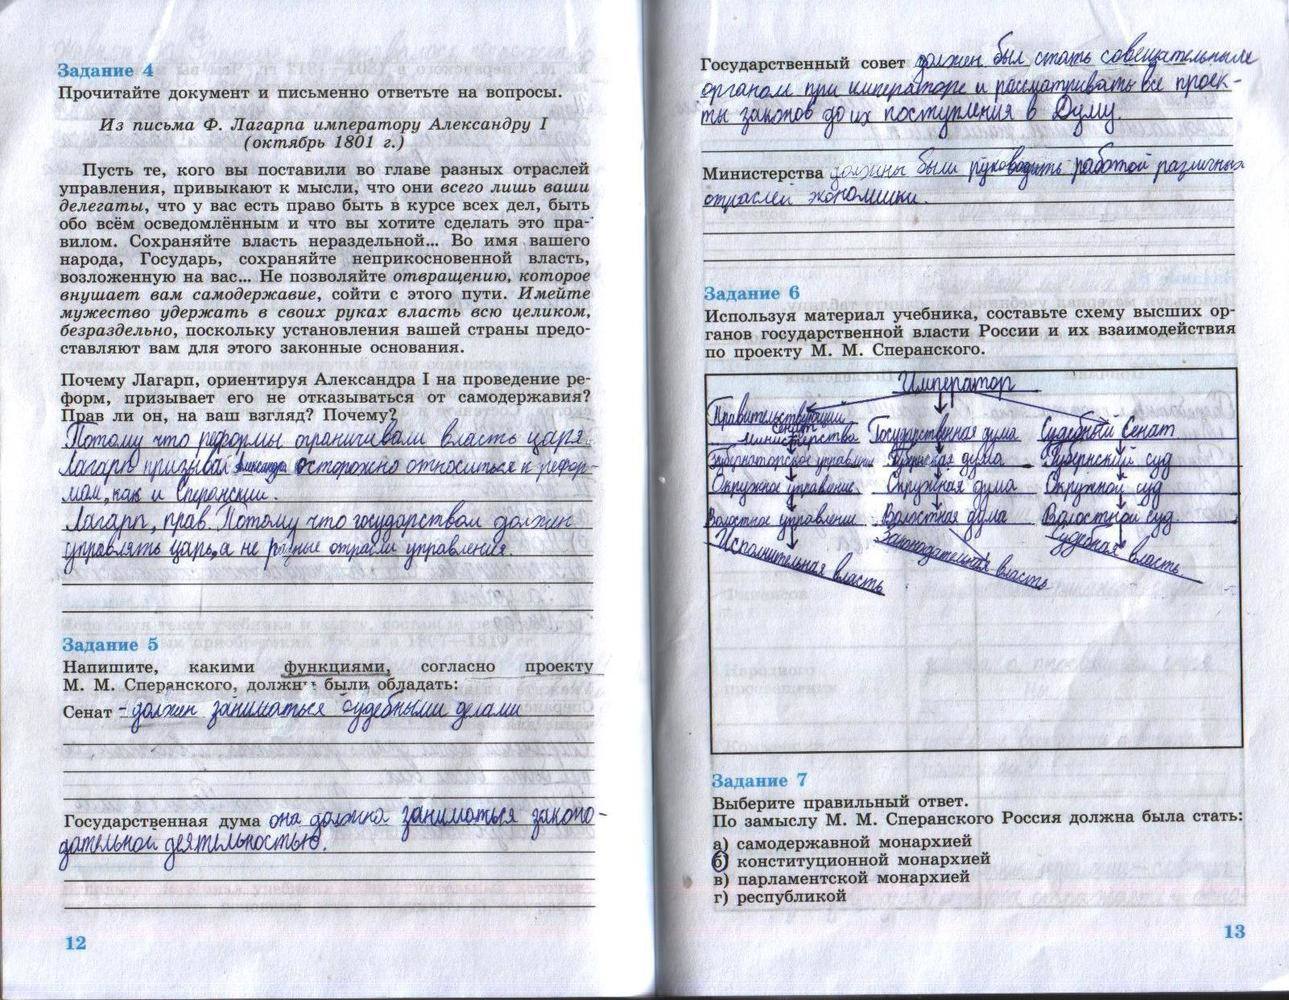 Задание 4
Прочитайте документ и письменно ответьте на вопросы.
Из письма Ф. Лагарпа императору Александру I
(октябрь 1801 г.)
Пусть те, кого вы поставили во главе разных отраслей
управления, привыкают к мысли, что они всего лишь ваши
делегаты, что у вас есть право быть в курсе всех дел, быть
обо всём осведомлённым и что вы хотите сделать это пра-
вилом. Сохраняйте власть нераздельной... Во имя вашего
народа, Государь, сохраняйте неприкосновенной власть,
возложенную на вас... Не позволяйте отвращению, которое
внушает вам самодержавие, сойти с этого пути. Имейте
мужество удержать в своих руках власть всю целиком,
безраздельно, поскольку установления вашей страны предо-
ставляют вам для этого законные основания.
Почему Лагарп, ориентируя Александра I на проведение ре-
форм, призывает его не отказываться от самодержавия?
Прав ли он, на ваш взгляд? Почему?
Потому что реформы ограничивали власть царя.
Лагарп призывал Александра осторожно относиться к рефор-
мам, как и Сперанский.
Лагарп, прав. Потому что государством должен
управлять царь, а не разные отрасли управления.
Задание 5
Напишите, какими функциями, согласно проекту
М. М. Сперанского, должны были обладать:
Сенат - должен заниматься судебными делами
Государственная дума она должна заниматься законо-
дательной деятельностью.
12
Государственный совет должен был стать совещательным
органом при императоре и рассматривать все проек-
ты законов до их поступления в Думу.
Министерства должны были руководить работой различных
отраслей экономики.
Задание 6
Используя материал учебника, составьте схему высших ор-
ганов государственной власти России и их взаимодействия
по проекту М. М. Сперанского.
Император
Правительствующий
сенат
министерства Государственная дума Судебный Сенат
Губернаторское управление Губернская дума Губернский суд
Окружное управление Окружная дума Окружной суд
Волостное управление Волостная дума Волостной суд
Исполнительная власть Законодательная власть Судебная власть
Задание 7
Выберите правильный ответ.
По замыслу М. М. Сперанского Россия должна была стать:
а) самодержавной монархией
б) конституционной монархией
в) парламентской монархией
г) республикой
13